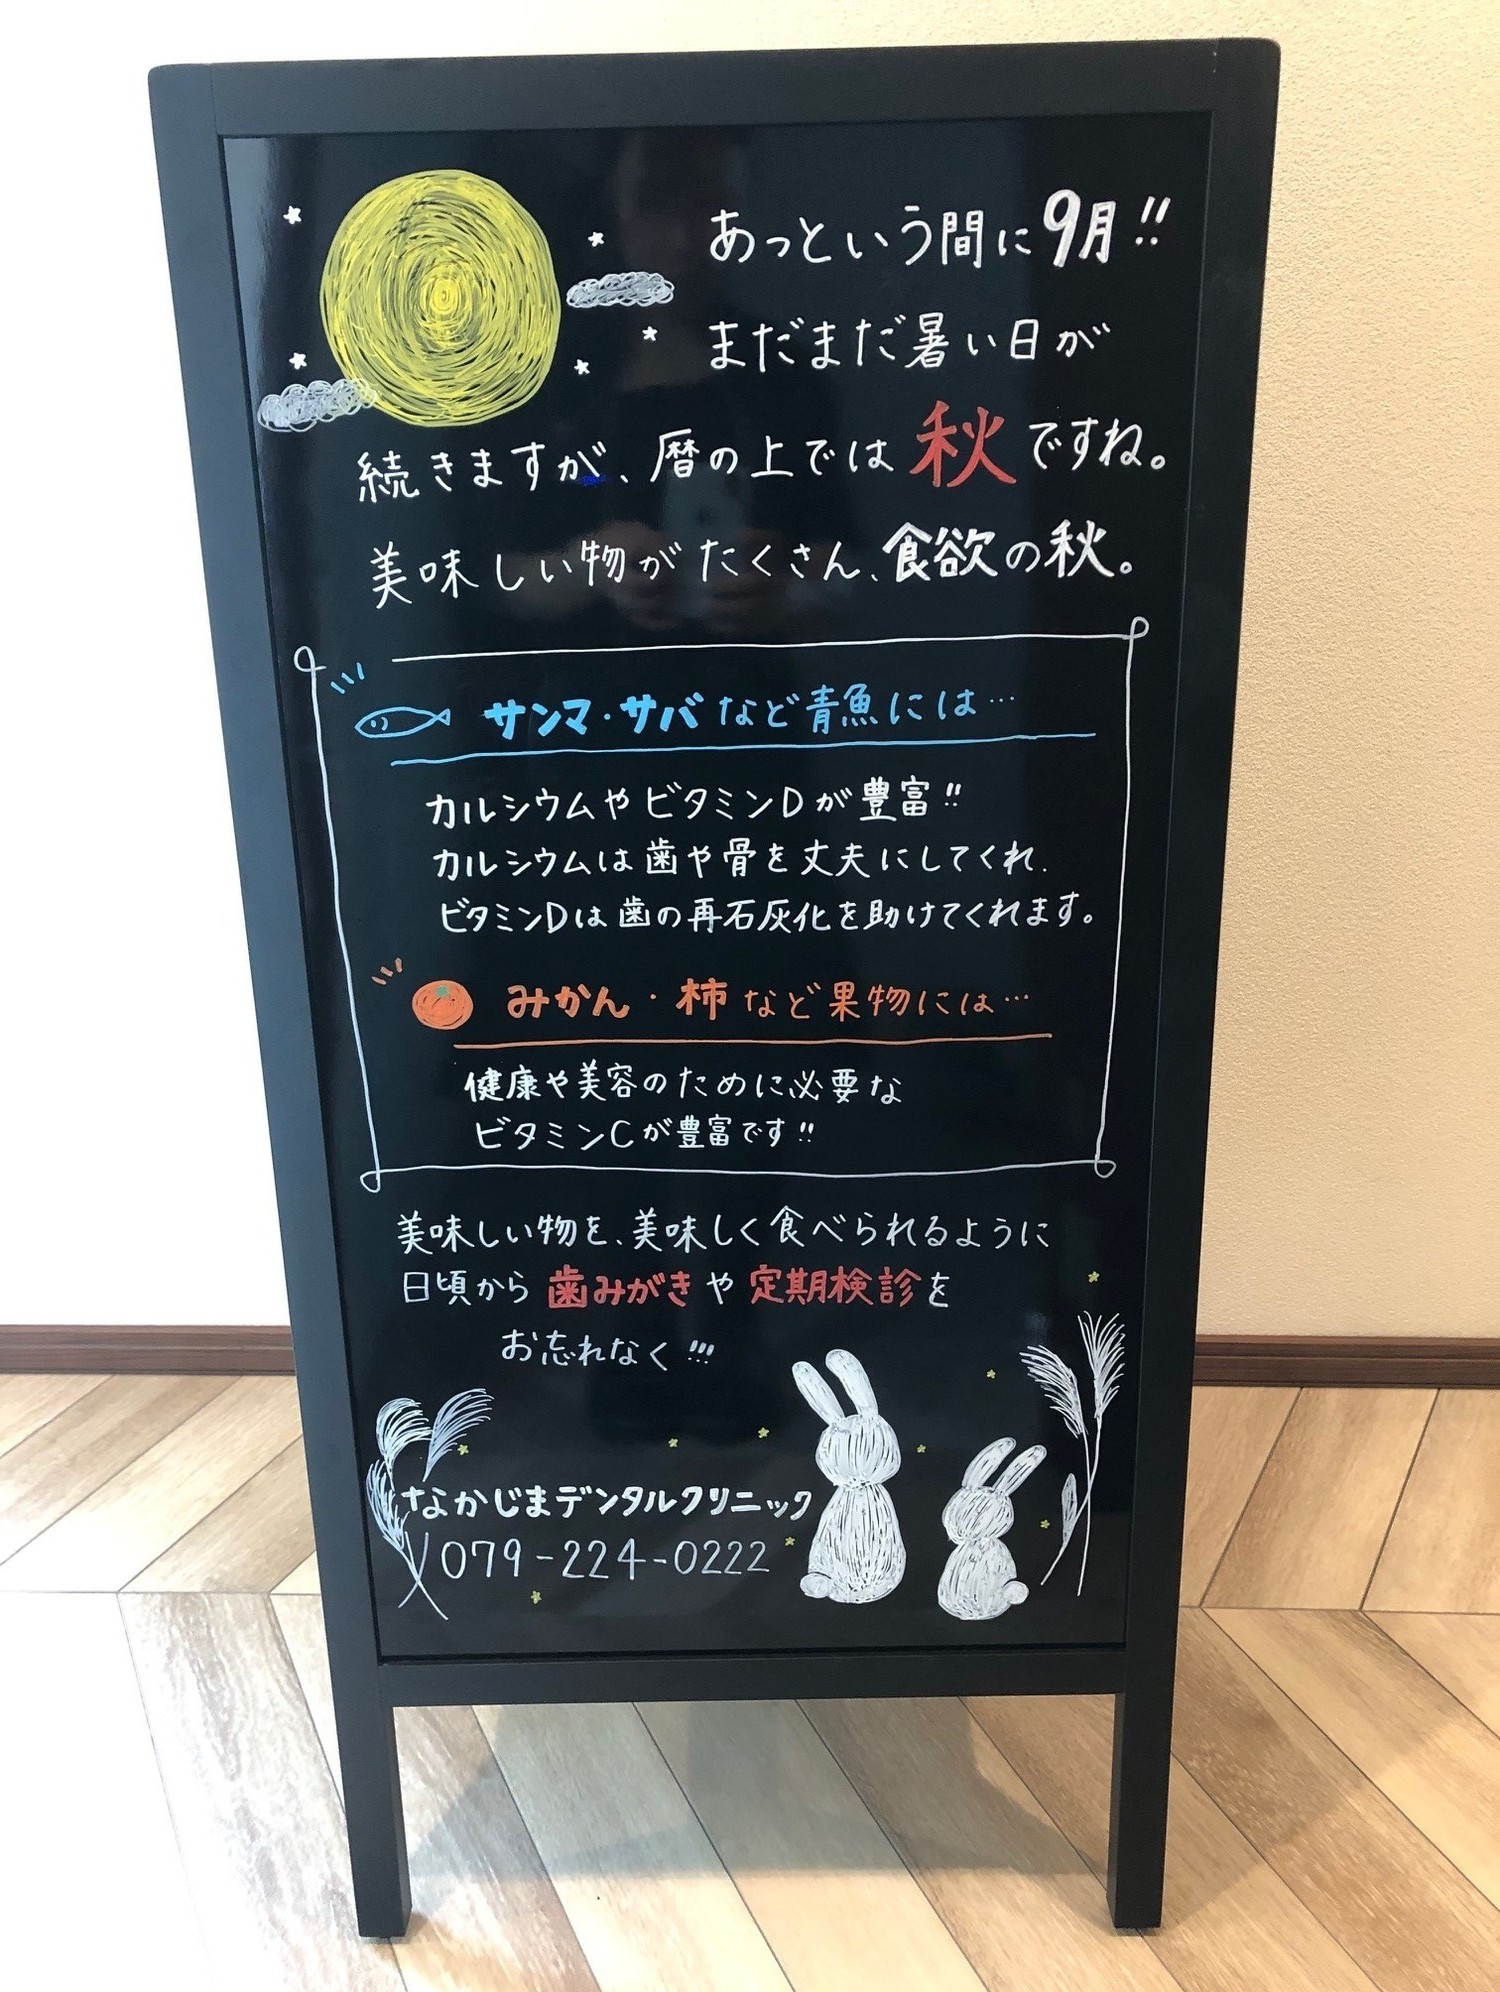 あっという間に9月!!
まだまだ暑い日が
続きますが、暦の上では秋ですね。
美味しい物がたくさん、食欲の秋。
サンマ・サバなど青魚には…
カルシウムやビタミンDが豊富!!
カルシウムは歯や骨を丈夫にしてくれ、
ビタミンDは歯の再石灰化を助けてくれます。
みかん・柿など果物には…
健康や美容のために必要な
ビタミンCが豊富です!!
美味しい物を、美味しく食べられるように
日頃から歯みがきや定期検診を
お忘れなく!!!
なかじまデンタルクリニック
079-224-0222